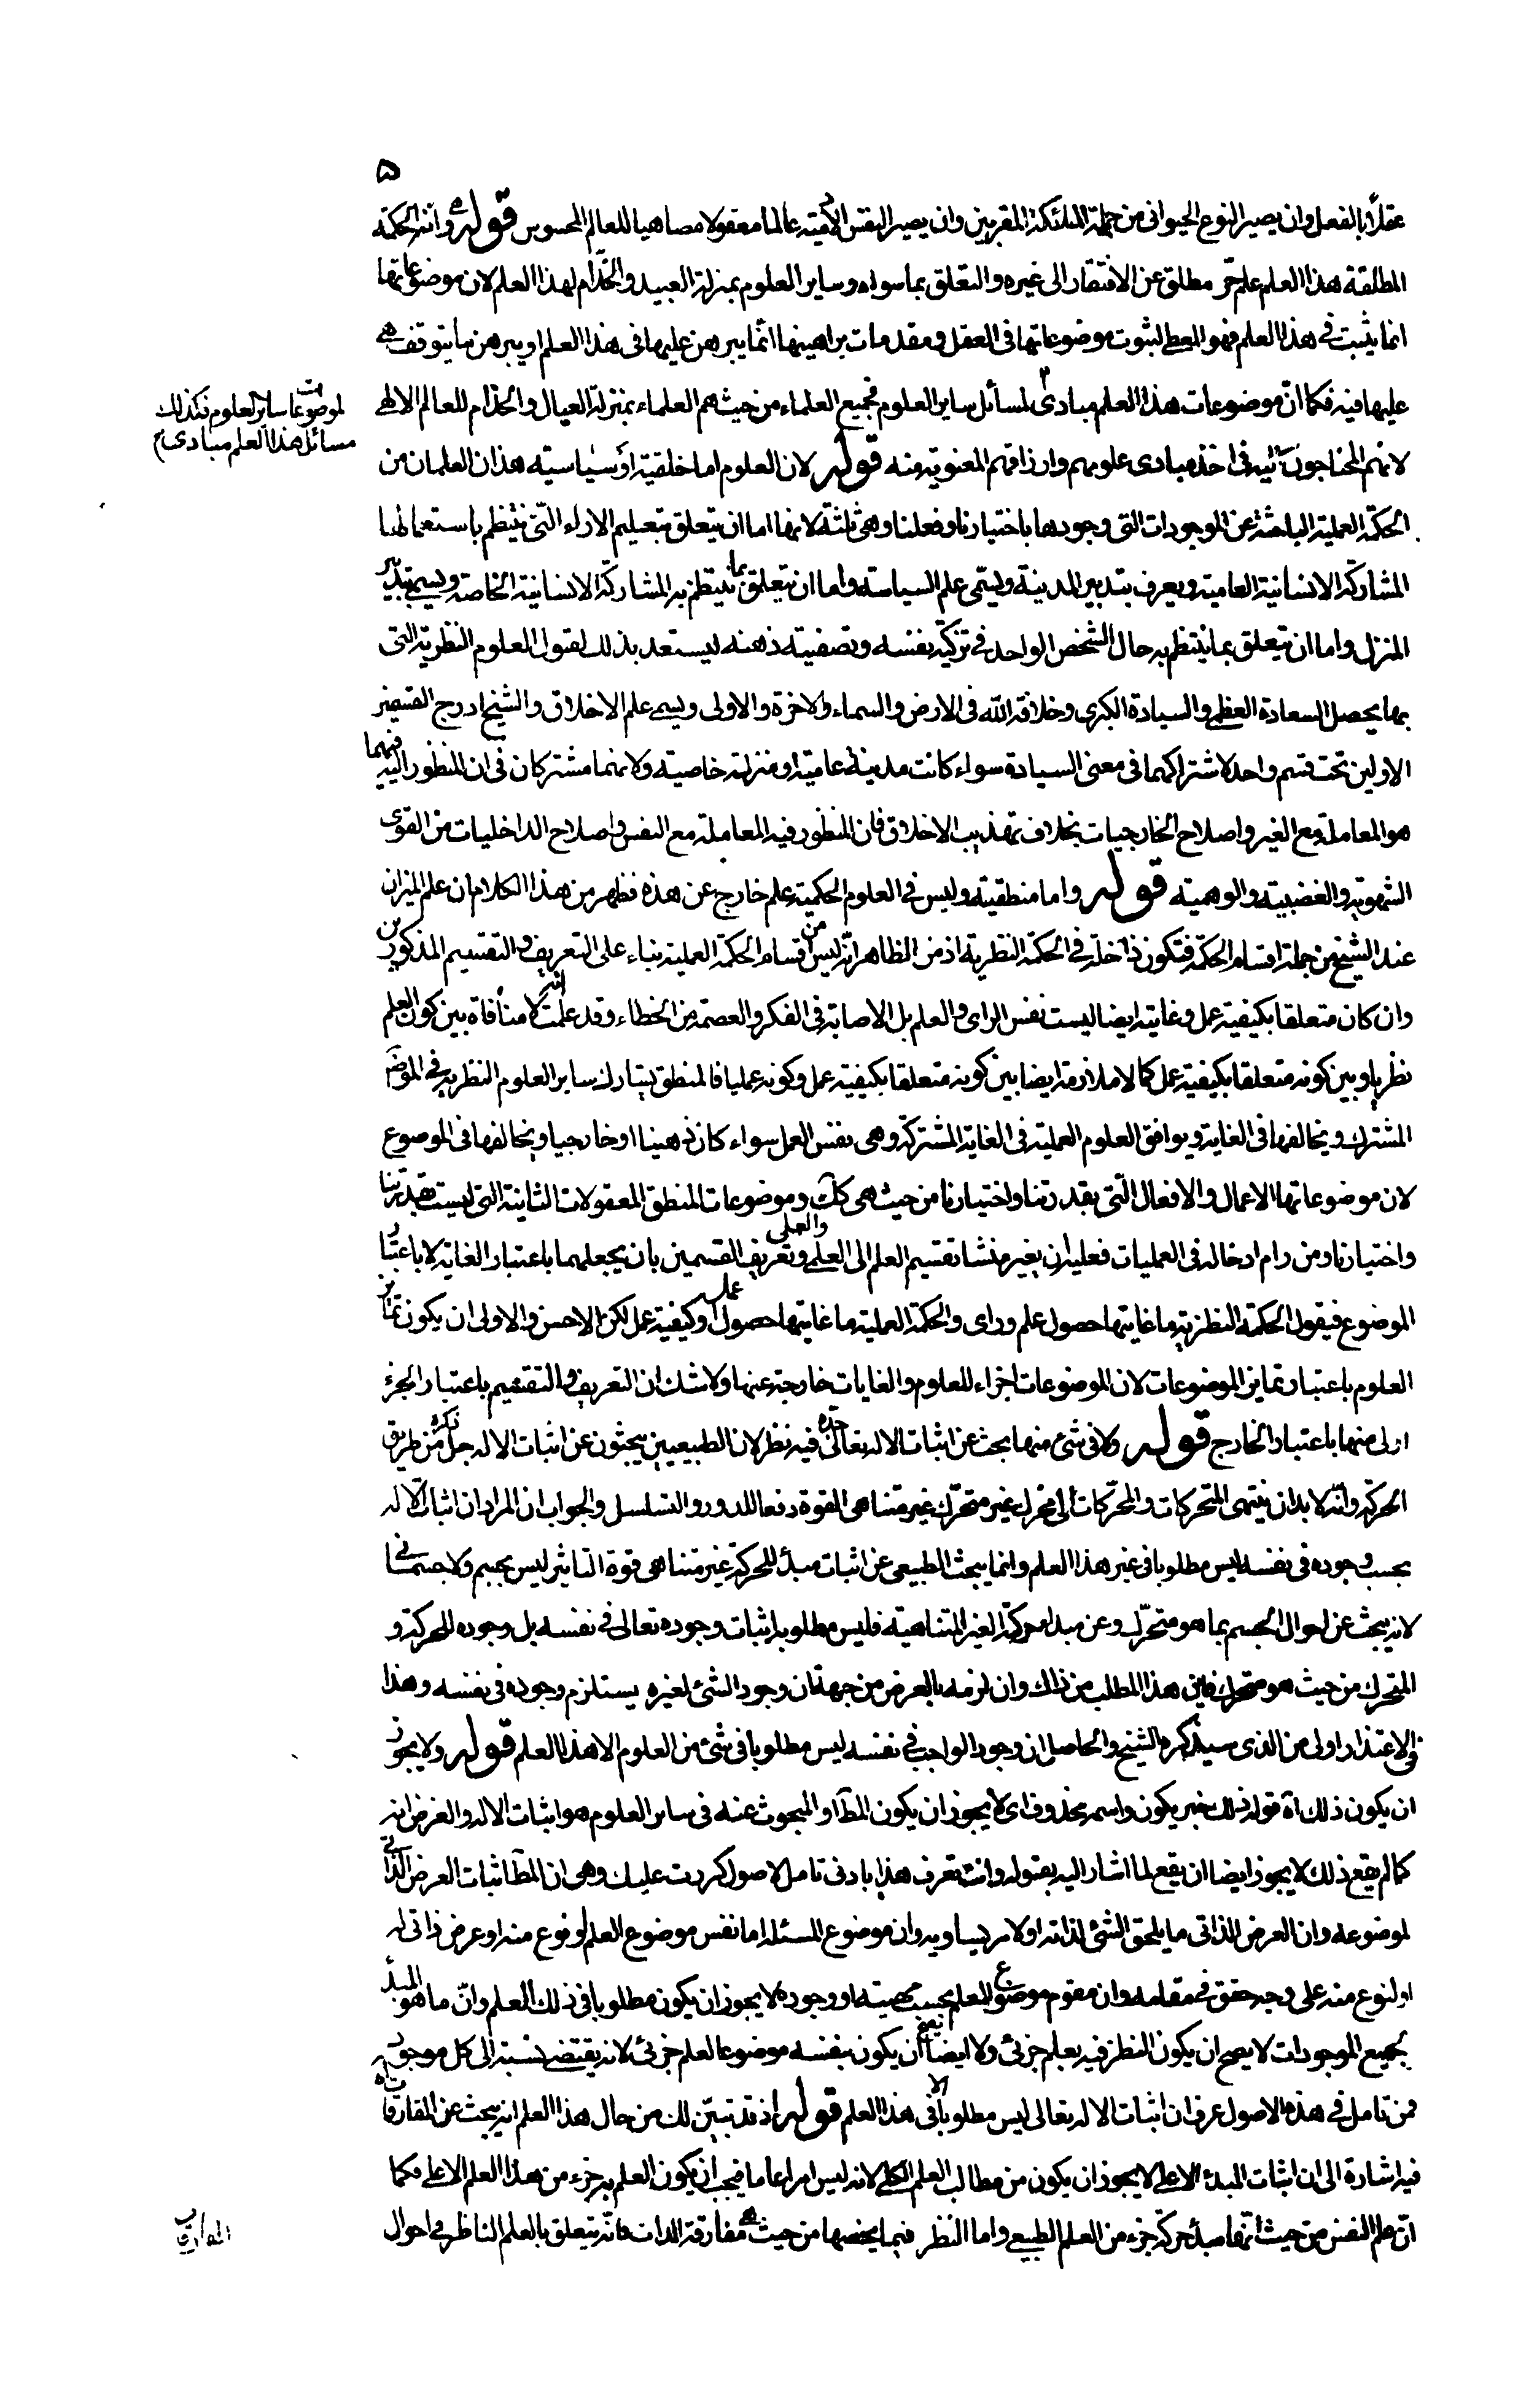 ۵
عقلاً بالفعل وان يصير النوع الحيوانى من جملة الملئكة المقربين وان يصير النفس الآدمية عالما معقولا مضاهيا للعالم المحسوس قوله وانه الحكمة
المطلقة هذا العلم علم حرّ مطلق عن الافتقار الى غيره والتعلق بما سواه وساير العلوم بمنزلة العبيد والخدّام لهذا العلم لان موضوعاتها
انما يثبت فى هذا العلم فهو المعطى لثبوت موضوعاتها فى العقل ومقدمات براهينها انما يبرهن عليها فى هذا العلم او يبرهن ما يتوقف هى
عليها فيه فكما انّ موضوعات هذا العلم مبادى لمسائل ساير العلوم فجميع العلماء من حيث هم العلماء بمنزلة العيال والخدام للعالم الالهى
لموضوعات ساير العلوم فكذلك
مسائل هذا العلم مبادى
لانهم المحتاجون اليه فى اخذ مبادى علومهم وارزاقهم المعنوية منه قوله لان العلوم اما خلقية او سياسية هذان العلمان من
الحكمة العملية الباحثة عن الموجودات التى وجودها باختيارنا وفعلنا وهى ثلثة لانها اما ان يتعلق بتعليم الاراء التى ينتظم باستعمالها
المشاركة الانسانية العامية ويعرف بتدبير المدينة ويسمّى علم السياسة واما ان يتعلق بما ينتظم به المشاركة الانسانية الخاصة ويسمى بتدبير
المنزل واما ان يتعلق بما ينتظم به حال الشخص الواحد فى تزكية نفسه وتصفية ذهنه ليستعد بذلك لقبول العلوم النظرية التى
بها يحصل السعادة العظمى والسيادة الكبرى وخلافة الله فى الارض والسماء والاخرة والاولى ويسمى علم الاخلاق والشيخ ادرج القسمين
الاولين تحت قسم واحد لاشتراكهما فى معنى السيادة سواء كانت مدينة عامية او منزلة خاصية ولانهما مشتركان فى ان المنظور اليه فيهما
هو المعاملة مع الغير واصلاح الخارجيات بخلاف تهذيب الاخلاق فان المنظور فيه المعاملة مع النفس واصلاح الداخليات من القوى
الشهوية والغضبية والوهمية قوله واما منطقية وليس فى العلوم الحكمية علم خارج عن هذه فظهر من هذا الكلام ان علم الميزان
عند الشيخ من جملة اقسام الحكمة فتكون داخلة فى الحكمة النظرية اذ من الظاهر انه ليس من اقسام الحكمة العملية بناء على التعريف والتقسيم المذكورين
وان كان متعلقا بكيفية عمل وغايته ايضا ليست نفس الراى والعلم بل الاصابة فى الفكر والعصمة من الخطاء وقد علمت انه لا منافاة بين كون العلم
نظريا وبين كونه متعلقا بكيفية عمل كما لا ملازمة ايضا بين كونه متعلقا بكيفية عمل وكونه عمليا فالمنطق يشارك ساير العلوم النظرية فى الموضوع
المشترك ويخالفها فى الغاية ويوافق العلوم العملية فى الغاية المشتركة وهى نفس العمل سواء كان ذهنيا او خارجيا ويخالفها فى الموضوع
لان موضوعاتها الاعمال والافعال التى بقدرتنا واختيارنا من حيث هى كك وموضوعات المنطق المعقولات الثانية التى ليست بقدرتنا
واختيارنا ومن رام ادخاله فى العمليات فعليه ان يغير منشا تقسيم العلم الى العلمى والعملى وتعريف القسمين بان يجعلهما باعتبار الغاية لا باعتبار
الموضوع فيقول الحكمة النظرية ما غايتها حصول علم وراى والحكمة العملية ما غايتها حصول عمل او كيفية عمل لكن الاحسن والاولى ان يكون تمايز
العلوم باعتبار تمايز الموضوعات لان الموضوعات اجزاء للعلوم والغايات خارجة عنها ولا شك ان التعريف والتقسيم باعتبار الجزء
اولى منها باعتبار الخارج قوله ولا فى شئ منها بحث عن اثبات الاله تعالى جدّه فيه نظر لان الطبيعيين يبحثون عن اثبات الاله جل ذكره من طريق
الحركة وانه لا بد ان ينتهى المتحركات والمحركات الى محرك غير متحرك غير متناهى القوة دفعا للدور والتسلسل والجواب ان المراد ان اثبات الاله
بحسب وجوده فى نفسه ليس مطلوبا فى غير هذا العلم وانما يبحث الطبيعى عن اثبات مبدأ للحركة غير متناهى قوة التاثير ليس بجسم ولا جسمانى
لانه يبحث عن احوال الجسم بما هو متحرك وعن مبدا حركته الغير المتناهية فليس مطلوبه اثبات وجوده تعالى فى نفسه بل وجوده للحركة و
المتحرك من حيث هو متحرك فاين هذا المطلب من ذاك وان لزمه بالعرض من جهة ان وجود الشئ لغيره يستلزم وجوده فى نفسه وهذا
فى الاعتذار اولى من الذى سيذكره الشيخ والحاصل ان وجود الواجب فى نفسه ليس مطلوبا فى شئ من العلوم الا هذا العلم قوله ولا يجوز
ان يكون ذلك آه قوله ذلك خبر يكون واسمه محذوف اى لا يجوز ان يكون المط او المبحوث عنه فى ساير العلوم هو اثبات الاله والغرض انه
كما لم يقع ذلك لا يجوز ايضا ان يقع لما اشار اليه بقوله وانت تعرف هذا بادنى تامل لاصول كررت عليك وهى ان المط اثبات العرض الذاتى
لموضوعه وان العرض الذاتى ما يلحق الشئ لذاته او لامر يساويه وان موضوع المسئلة اما نفس موضوع العلم او نوع منه او عرض ذاتى له
او لنوع منه على وجه حقق فى مقامه وان مقوم موضوع العلم بحسب مهيته او وجوده لا يجوز ان يكون مطلوبا فى ذلك العلم وانّ ما هو المبدأ
لجميع الموجودات لا يصح ان يكون النظر فيه بعلم جزئى ولا ايضا يصح ان يكون بنفسه موضوعا لعلم جزئى لانه يقتضى نسبة الى كل موجود
فمن تامل فى هذه الاصول عرف ان اثبات الاله تعالى ليس مطلوبا الا فى هذا العلم قوله اذ قد تبيّن لك من حال هذا العلم انه يبحث عن المفارقات آه
فيه اشارة الى ان اثبات المبدء الاعلى لا يجوز ان يكون من مطالب العلم الكلى لانه ليس امرا عاما فيجب ان يكون العلم به جزء من هذا العلم الاعلى فكما
انّ علم النفس من حيث انها مبدأ حركة جزء من العلم الطبيعى واما النظر فيما يخصها من حيث هى مفارقة الذات فانه يتعلق بالعلم الناظر فى احوال
المفارقات